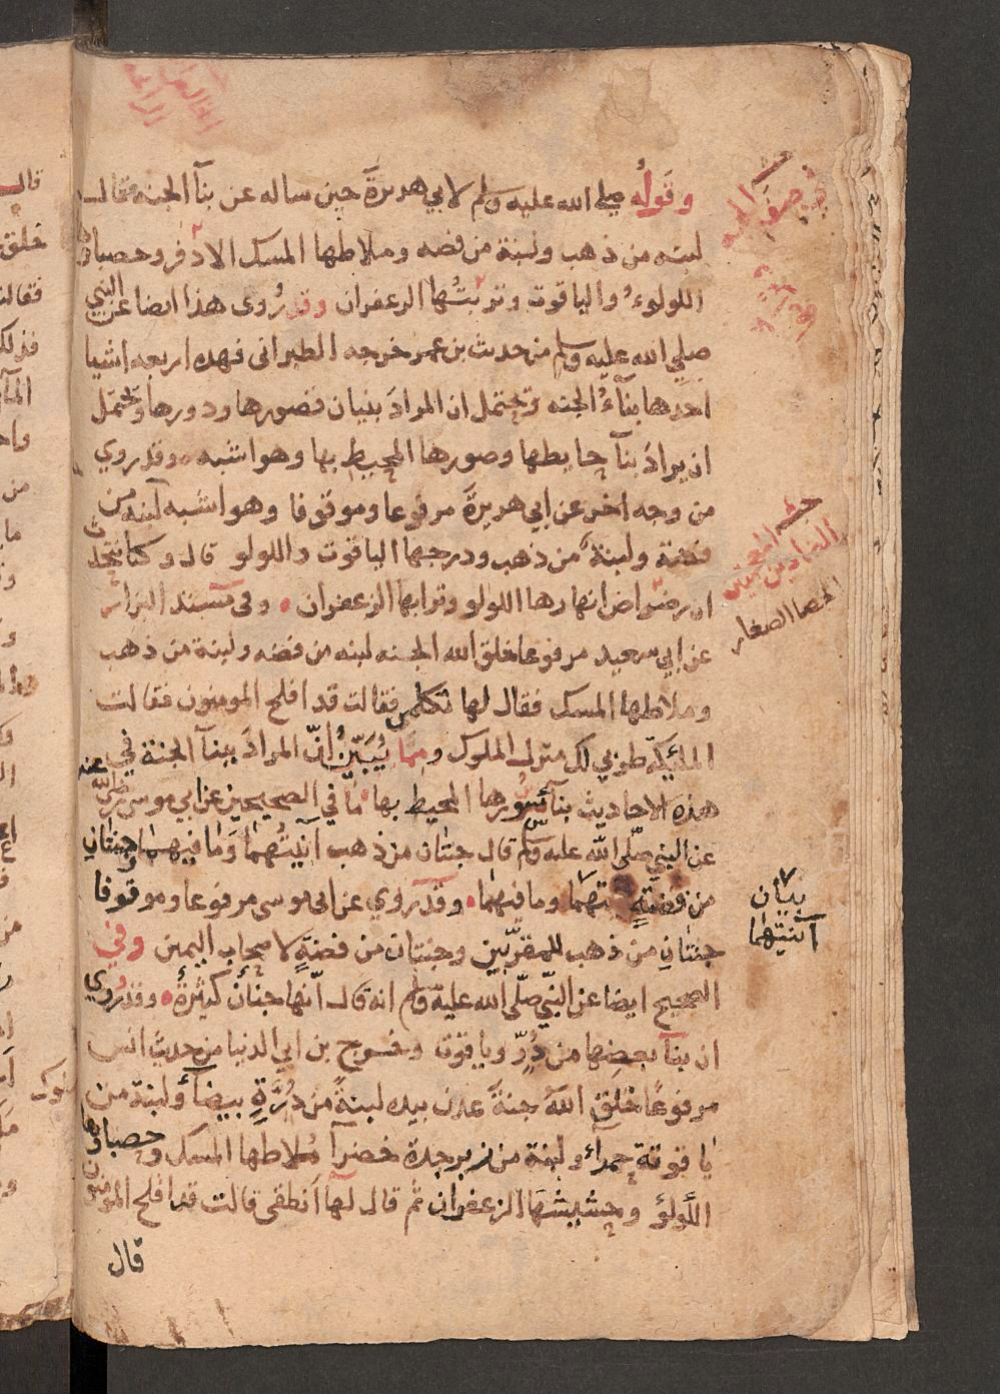 وقوله صلي الله عليه وسلم لابي هريرة حين ساله عن بنآ الجنه فقال
لبنه من ذهب ولبنة من فضه وملاطها المسك الاذفر وحصباؤها
اللولوء والياقوت وتربتُها الزعفران وقد رُوى هذا ايضا عن النبي
صلي الله عليه وسلم من حديث بن عمر خرجه الطبرانى فهذه اربعه اشيا
احدها بنآءُ الجنه ويحتمل ان المرادَ بنيان قصورها ودورها ويحتمل
ان يرادَ بنآ حايطها وسورها المحيط بها وهو اشبه وقد روي
من وجه اخر عن ابي هريرةَ مرفوعا وموقوفا وهو اشبه لبنه من
فضة ولبنة من ذهب ودرجها الياقوت واللولو قال وكنا نتحدث
ان رضراض انهارها اللولو وترابها الزعفران وفى مسند البزار
عن ابي سعيد مرفوعا خلق الله الجنه لبنه من فضه ولبنة من ذهب
وملاطها المسك فقال لها تكلمي فقالت قد افلح المومنون فقالت
المليكة طوبي لك منزل الملوك ومِمَّا يُبَيِّنُ أنّ المرادَ ببنآ الجنة في
هذه الاحاديث بنآ سُورها المحيط بها ما في الصحيحين عن ابي موسى رضي الله عنه
عن النبي صلّى الله عليه وسلم قال جنتان من ذهب آنيتُهما وَمَا فيهما وجنتان
من فضةٍ تهما وما فيهما وقد روي عن ابى موسى مرفوعا وموقوفا
جنتانِ من ذهب للمقرّبين وجنتان من فضةٍ لاصحاب اليمين وفي
الصحيح ايضا عن النبيّ صلّى الله عليه وسلم انه قال انّها جنانٌ كثيرةٌ وقد رُوي
ان بنآ بعضها من دُرّ وياقوت وخرج بن ابي الدنيا من حديث انس
مرفوعًا خلق اللهُ جنةَ عدن بيده لبنةً من دُرَّةٍ بيضآءَ ولبنة من
يا قوتة حمراء ولبنة من زبرجدة خضرآ مُلاطها المسك وحصباؤها
اللؤلؤ وحشيشهَا الزعفران ثم قال لهآ انطقى قالت قد افلح المومنون
قال
الحصا الصغار
بيان
آنيتهما